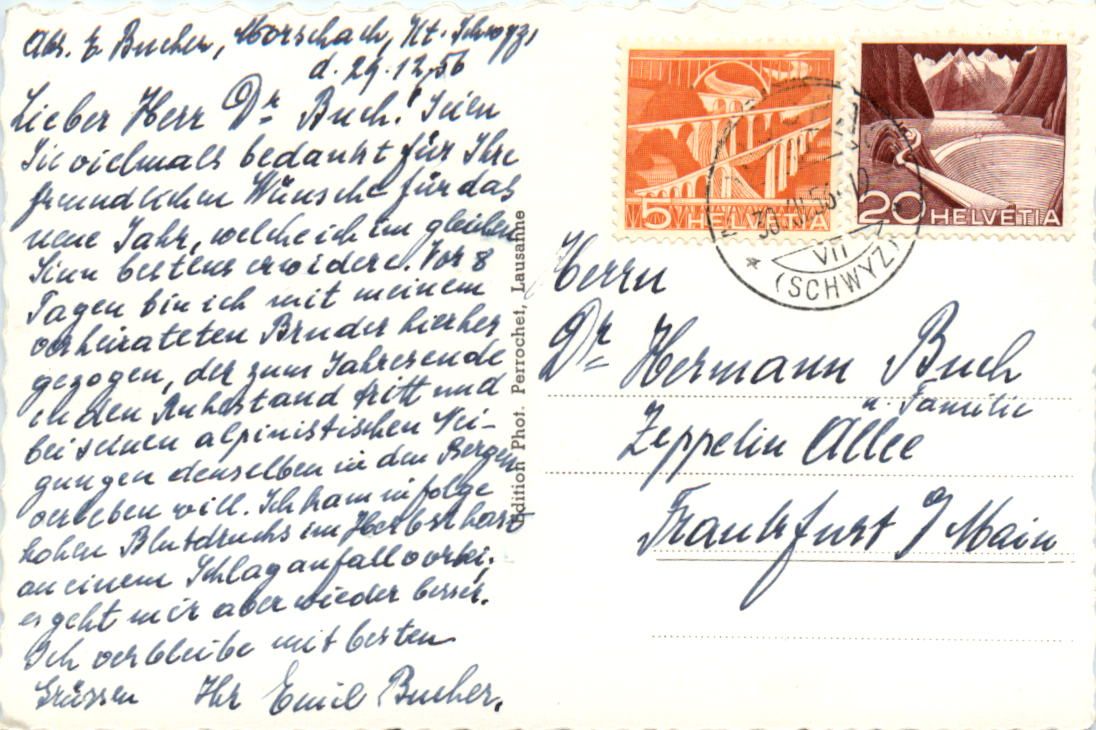 Abs. E Bucher, Morschach, Kt. Schwyz,
d. 29.12.56
Lieber Herr Dr Buch! Seien
Sie vielmals bedankt für Ihre
freundlichen Wünsche für das
neue Jahr, welche ich im gleichen
Sinn bestens erwidere. Vor 8
Tagen bin ich mit meinem
verheirateten Bruder hierher
gezogen, der zum Jahresende
in den Ruhestand tritt und
bei seinen alpinistischen Nei-
gungen denselben in den Bergen
verleben will. Ich kam infolge
hohen Blutdrucks im Herbst hart
an einem Schlaganfall vorbei;
es geht mir aber wieder besser.
Ich verbleibe mit besten
Grüssen Ihr Emil Bucher.
Edition Phot. Perrochet, Lausanne
5 HELVETIA
20 HELVETIA
VII
(SCHWYZ)
Herrn
Dr Hermann Buch
u. Familie
Zeppelin Allee
Frankfurt / Main